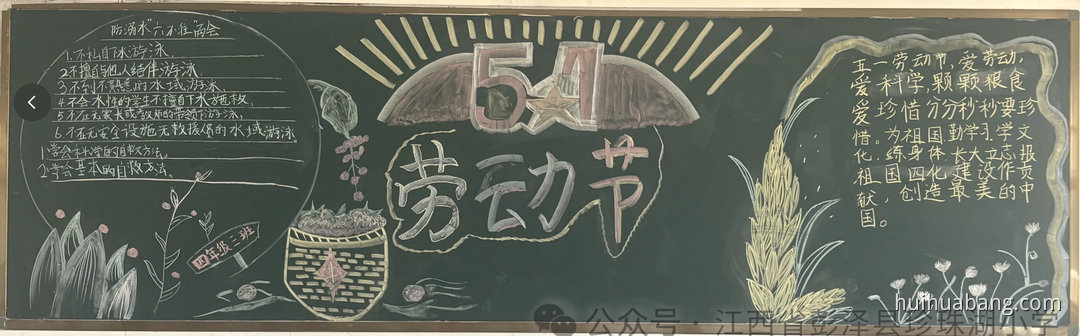 防溺水"六不准"两会
1.不私自下水游泳
2.不擅自与他人结伴游泳
3.不到不熟悉的水域游泳
4.不会水性的学生不擅自下水施救
5.不在无家长或教师的带领下游泳
6.不在无安全设施无救援保的水域游泳
1.学会科学的自救方法
2.学会基本的自救方法。
四年级三班
51
劳动节
五一劳动节,爱劳动,
爱科学,颗颗粮食
爱珍惜分分秒秒要珍
惜。为祖国勤学习,学文
化.练身体长大立志报
祖国四化建设作贡
献,创造最美的中
国。
huihuabang.com
公众号·江西省彭泽县珍珠湖小学